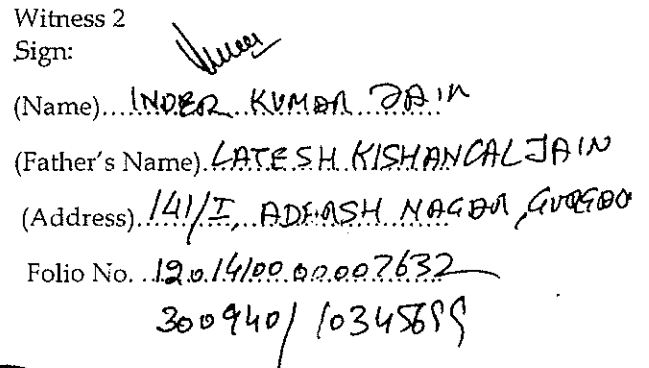 Witness 2
Sign:
(Name)....INDER KUMAR JAIN
(Father's Name).LATE SH. KISHANLAL JAIN
(Address).141/I, ADARSH NAGAR, GURGAO
Folio No. .1201410000007632
300940/ 10345699